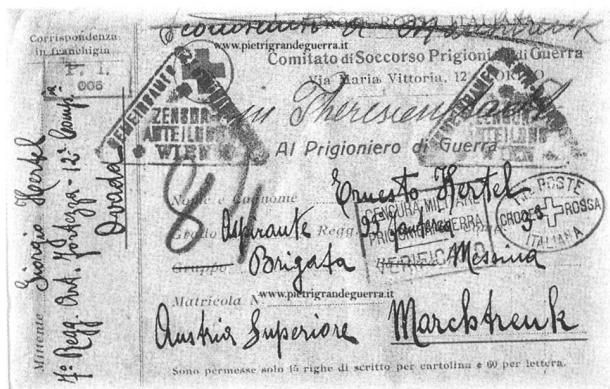 CROCE ROSSA ITALIANA
www.pietrigrandeguerra.it
Comitato di Soccorso Prigionieri di Guerra
Via Maria Vittoria, 12
Corrispondenza
in franchigia
P. I.
006
Theresienstadt
GEMEINSAMES
ZENSUR
ABTEILUNG
WIEN
ZENSUR
ABTEILUNG
WIEN
Al Prigioniero di Guerra
81
Nome e Cognome Ernesto Hertel
Grado Aspirante Regg. 93 fanteria
Gruppo Brigata Messina
CENSURA MILITARE
PRIGIONIERI GUERRA
VERIFICATO
POSTE
CROCE ROSSA
ITALIANA
Matricola N.
www.pietrigrandeguerra.it
Austria Superiore Marchtrenk
Sono permesse solo 15 righe di scritto per cartolina e 60 per lettera.
Mittente Giorgio Hertel
7º Regg. Art. Fortezza - 12ª Comp.ª
Ovada